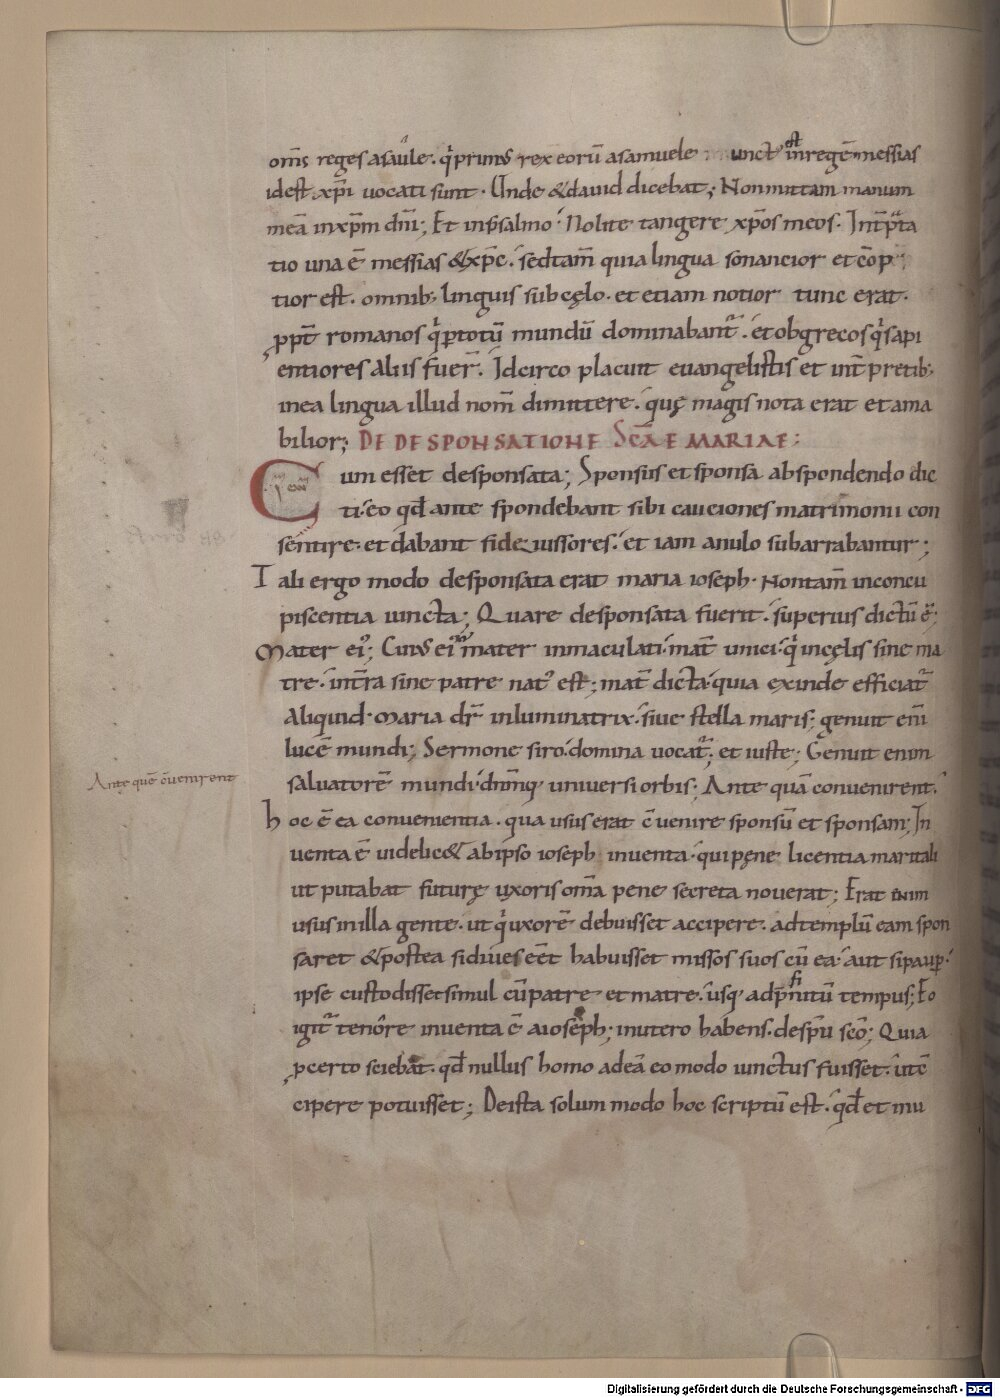 om̅s reges a saule. q̍ primus rex eorū a samuele unct̅ est in regē messias
id est xp̅i uocati sunt. Unde & dauid dicebat; Non mittam manum
meā in xp̅m dn̅i; Et in psalmo. Nolite tangere xp̅os meos. Int̅p̅ta
tio una ē messias & xp̅c. sed tam̅ quia lingua sonantior et
tior est. omnib; linguis sub cęlo. et etiam notior tunc erat.
ppt̅ romanos q̍ p totū mundū dominabant̅. et ob grecos q̍ sapi
entiores aliis fuer̅. Idcirco placuit euangelistis et int̅pretib;
in ea lingua illud nom̅ dimittere. quę magis nota erat et ama
bilior; DE DESPONSATIONE SC̅AE MARIAE:
Cum esset desponsata; Sponsus et sponsa ab spondendo dic
ti. eo qd̅ ante spondebant sibi cauciones matrimonii con
sentire. et dabant fideiussores. et iam anulo subarrabantur;
Tali ergo modo desponsata erat maria ioseph. Non tam̅ in concu
piscentia iuncta; Quare desponsata fuerit. superius dictū ē;
Mater ei᾽; Cuius ei᾽ mater inmaculati. mat̅ unici. q̍ in cęlis sine ma
tre. in t̅ra sine patre nat᾽ est; mat̅ dicta. quia exinde efficiat̅
aliquid. Maria dr̅ inluminatrix. siue stella maris; genuit eni̅
lucē mundi; Sermone siro. domina uocat̅; et iuste; Genuit enim
saluatorē mundi. dn̅mq; uniuersi orbis; Ante quā conuenirent.
Ante quē c̅uenirent
hoc ē ea conuenientia. qua usus erat c̅uenire sponsū et sponsam; In
uenta ē uidelic& ab ipso ioseph inuenta. qui pęne licentia maritali
ut putabat futurę uxoris om̅a pene secreta nouerat; Erat enim
usus in illa gente. ut q̍ uxorē debuisset accipere. ad templū eam spon
saret & postea si diues eēt habuisset missos suos cū ea. aut si paup.
ipse custodisset simul cū patre et matre. usq; ad p̅finitū tempus; Eo
igit̅ tenore inuenta ē a ioseph; in utero habens. de sp̅u sco̅; Quia
p certo sciebat. qd̅ nullus homo ad eā eo modo iunctus fuisset. ut c̅
cipere potuisset; De ista solum modo hoc scriptū est. qd̅ et inu
Digitalisierung gefördert durch die Deutsche Forschungsgemeinschaft - DFG